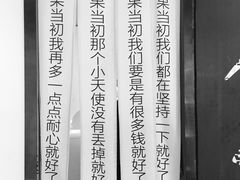 果当初我们都在坚持一下就好了
果当初我们要是有很多钱就好了
果当初那个小天使没有丢掉就好
果当初我再多一点点耐心就好了